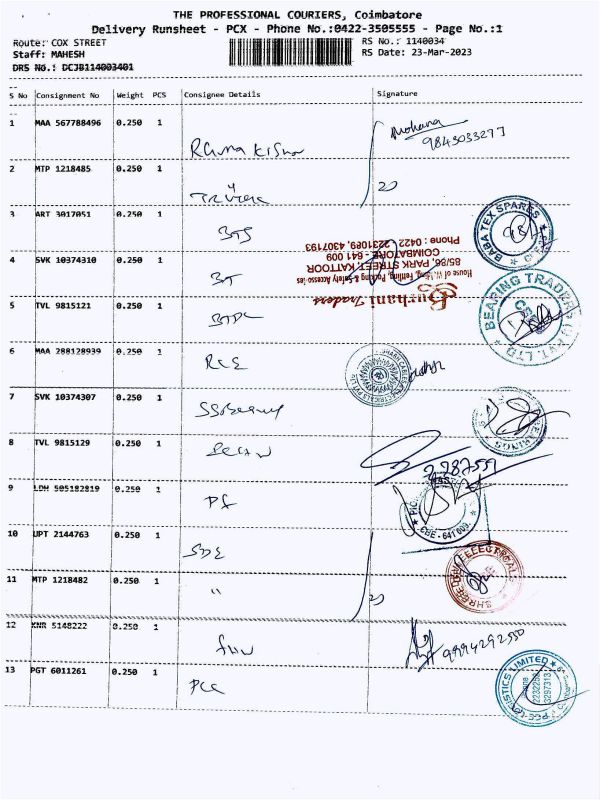 THE PROFESSIONAL COURIERS, Coimbatore
Delivery Runsheet - PCX - Phone No.:0422-3505555 - Page No.:1
Route: COX STREET RS No.: 1140034
Staff: MAHESH RS Date: 23-Mar-2023
DRS No.: DCJB114003401
S No Consignment No Weight PCS Consignee Details Signature
1 MAA 567788496 0.250 1 Mohana
9843033277
2 MTP 1218485 0.250 1 20
3 ART 3017051 0.250 1 BTS
BABA TEX SPARES
4 SVK 10374310 0.250 1 BT
Burhani Traders
85/86, PARK STREET, KATTOOR
COIMBATORE - 641 009
Phone : 0422 - 2231089, 4307193
5 TVL 9815121 0.250 1
BEARING TRADERS (I) PVT. LTD
6 MAA 288128939 0.250 1 RCE
7 SVK 10374307 0.250 1
8 TVL 9815129 0.250 1
9 LDH 505182819 0.250 1 PF
CBE - 641 009.
10 UPT 2144763 0.250 1 SDE
11 MTP 1218482 0.250 1 " 20
12 KNR 5148222 0.250 1
9994292550
13 PGT 6011261 0.250 1 PCC